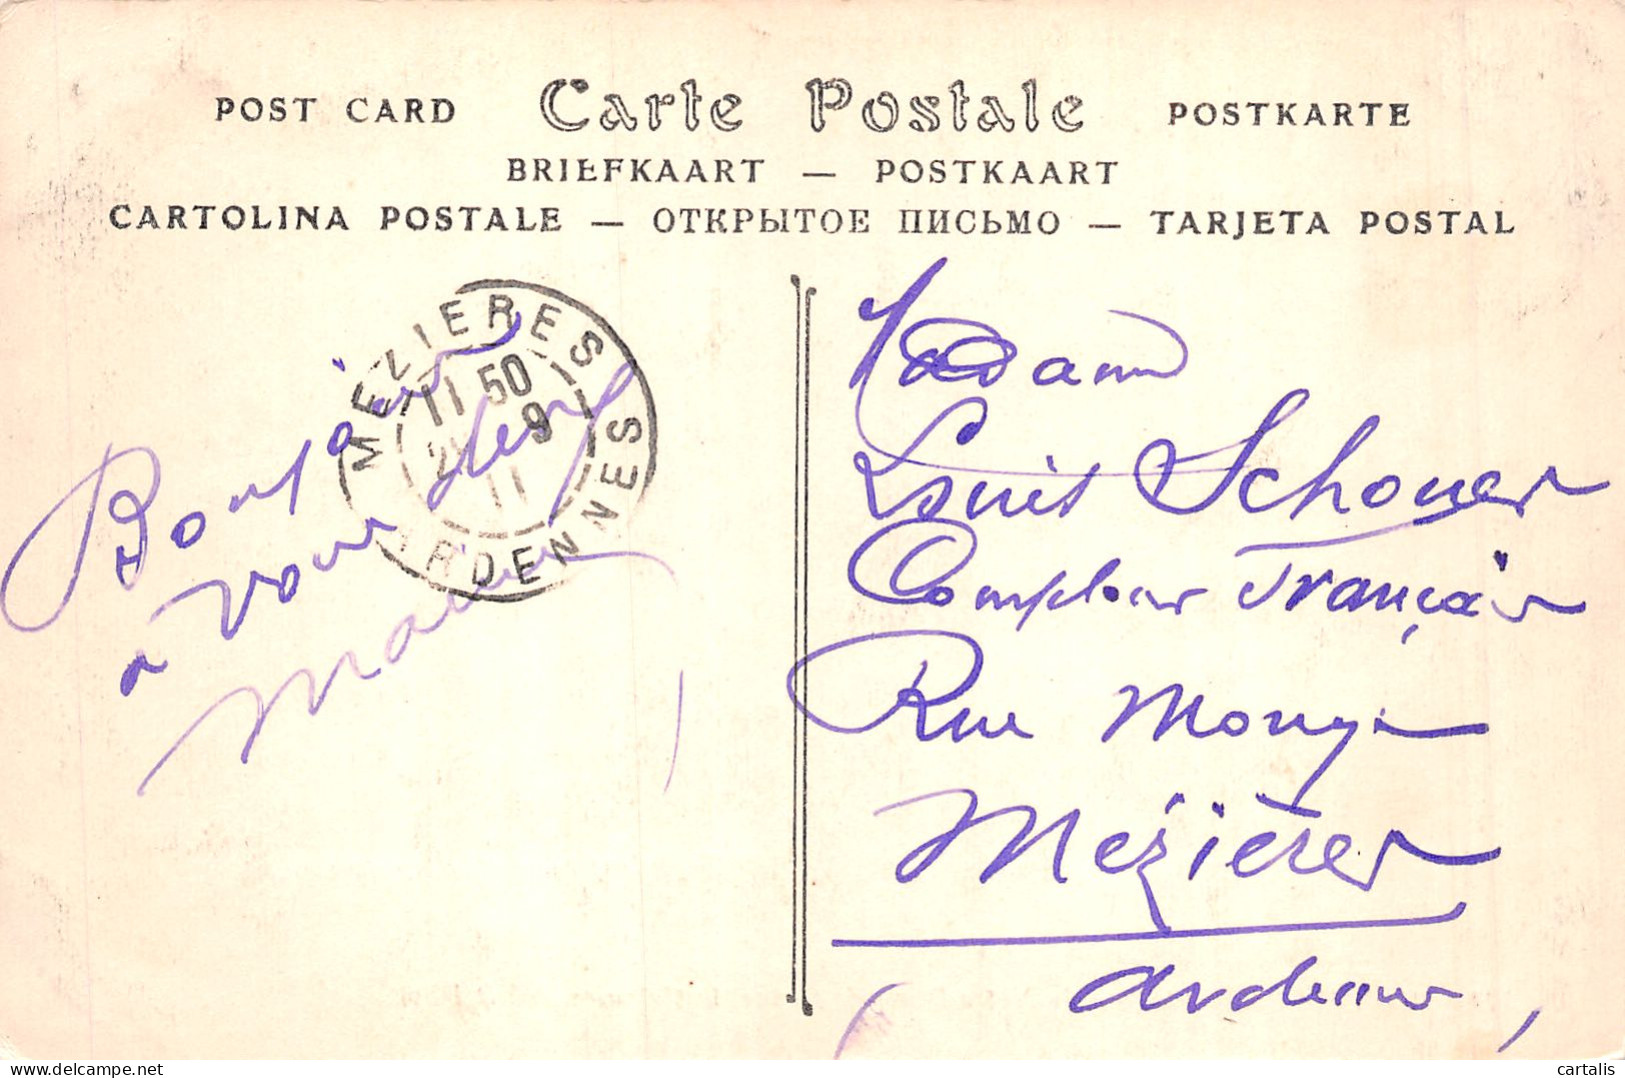 POST CARD Carte Postale POSTKARTE
BRIEFKAART — POSTKAART
CARTOLINA POSTALE — ОТКРЫТОЕ ПИСЬМО — TARJETA POSTAL
MEZIERES
11 50
9
11
ARDENNES
à
à vous
Madame
Louis Schouer
Comptoir Français
Rue Monge
Mézières
Ardennes
cartalis
delcampe.net